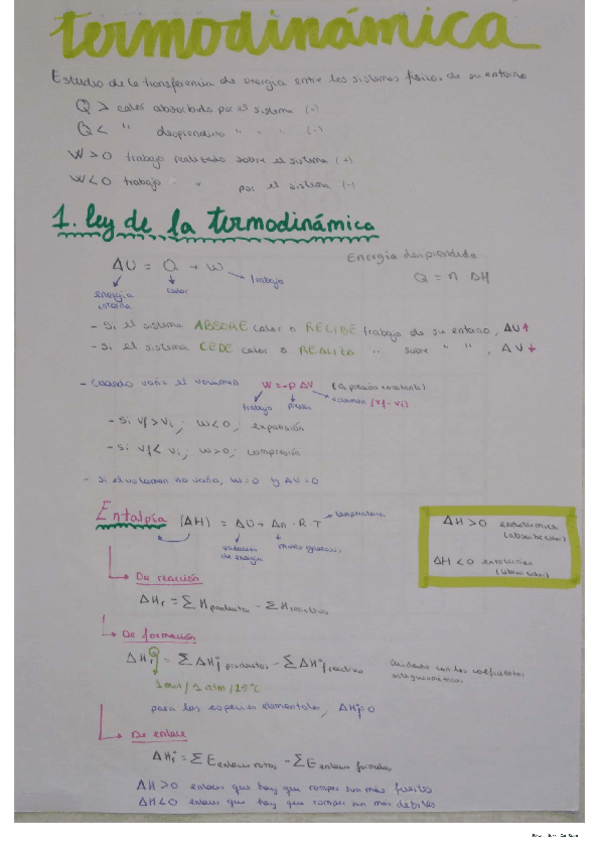 termodinámica
Estudio de la transferencia de energía entre los sistemas físicos de su entorno
Q > calor absorbido por el sistema (+)
Q < " desprendido " " " (-)
W>0 trabajo realizado sobre el sistema (+)
W<0 trabajo " por el sistema (-)
1. ley de la termodinámica
Energía desprendida
Q = n ΔH
ΔU = Q + W
trabajo
calor
energía
interna
- Si el sistema ABSORE calor o RECIBE trabajo de su entorno, ΔU↑
- Si el sistema CEDE calor o REALIZA " sobre " ", ΔU↓
- Cuando varía el volumen W=-P ΔV (a presión constante)
trabajo presión volumen (vf - vi)
- Si vf>vi; w<0; expansión
- Si vf< vi; w>0; compresión
- Si el volumen no varía, w=0 y ΔV=0
Entalpía (ΔH) = ΔU + Δn · R · T
temperatura
variación
de energía
moles gaseosos
ΔH>0 endotérmica
(absorbe calor)
ΔH<0 exotérmica
(libera calor)
De reacción
ΔHr = Σ Hproductos - Σ Hreactivos
De formación
ΔHr° = Σ ΔHf° productos - Σ ΔHf° reactivos
Cuidado con los coeficientes
estequiométricos
1mol / 1 atm / 25°C
para las especies elementales, ΔHf°=0
De enlace
ΔHr° = Σ E enlaces rotos - Σ E enlaces formados
ΔH>0 enlaces que hay que romper son más fuertes
ΔH<0 enlaces que hay que romper son más débiles